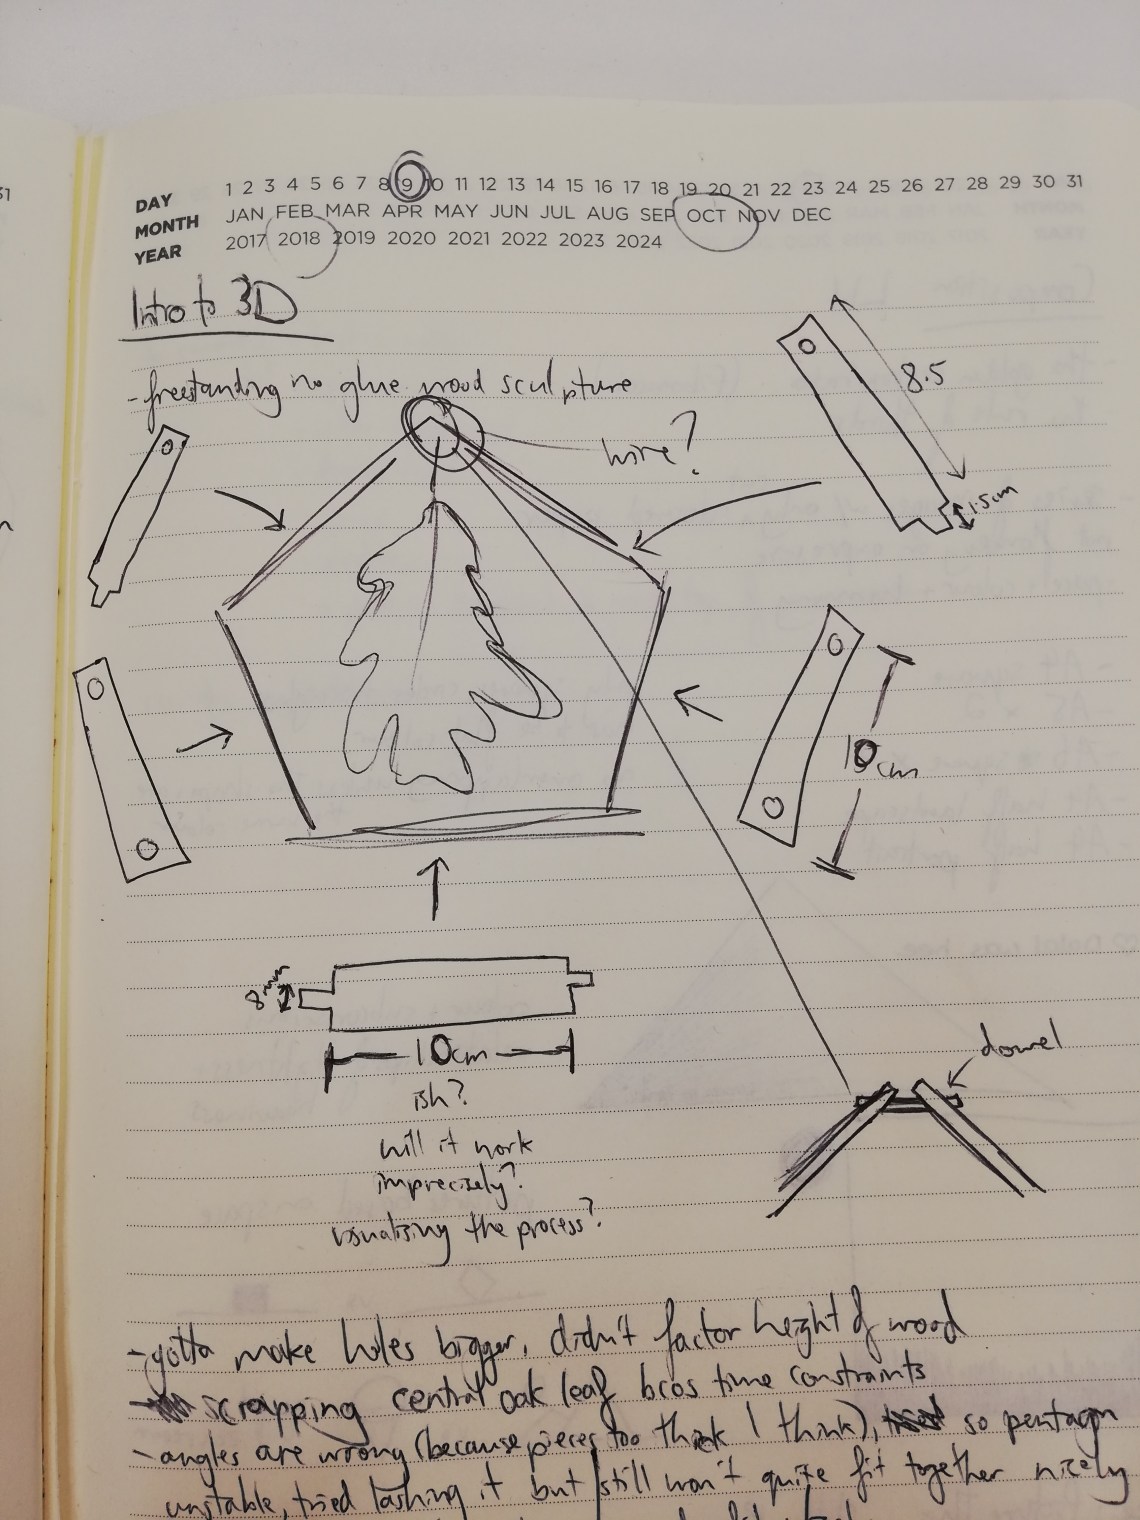 31
DAY 1 2 3 4 5 6 7 8 9 10 11 12 13 14 15 16 17 18 19 20 21 22 23 24 25 26 27 28 29 30 31
MONTH JAN FEB MAR APR MAY JUN JUL AUG SEP OCT NOV DEC
YEAR 2017 2018 2019 2020 2021 2022 2023 2024
Intro to 3D
- freestanding no glue wood sculpture
8.5
wire?
1.5cm
10cm
8mm
10cm
ish?
will it work
imprecisely?
visualising the process?
dowel
- gotta make holes bigger, didn't factor height of wood
scrapping central oak leaf bcos time constraints
- angles are wrong (because pieces too thick I think), so pentagon
unstable, tried lashing it but still won't quite fit together nicely